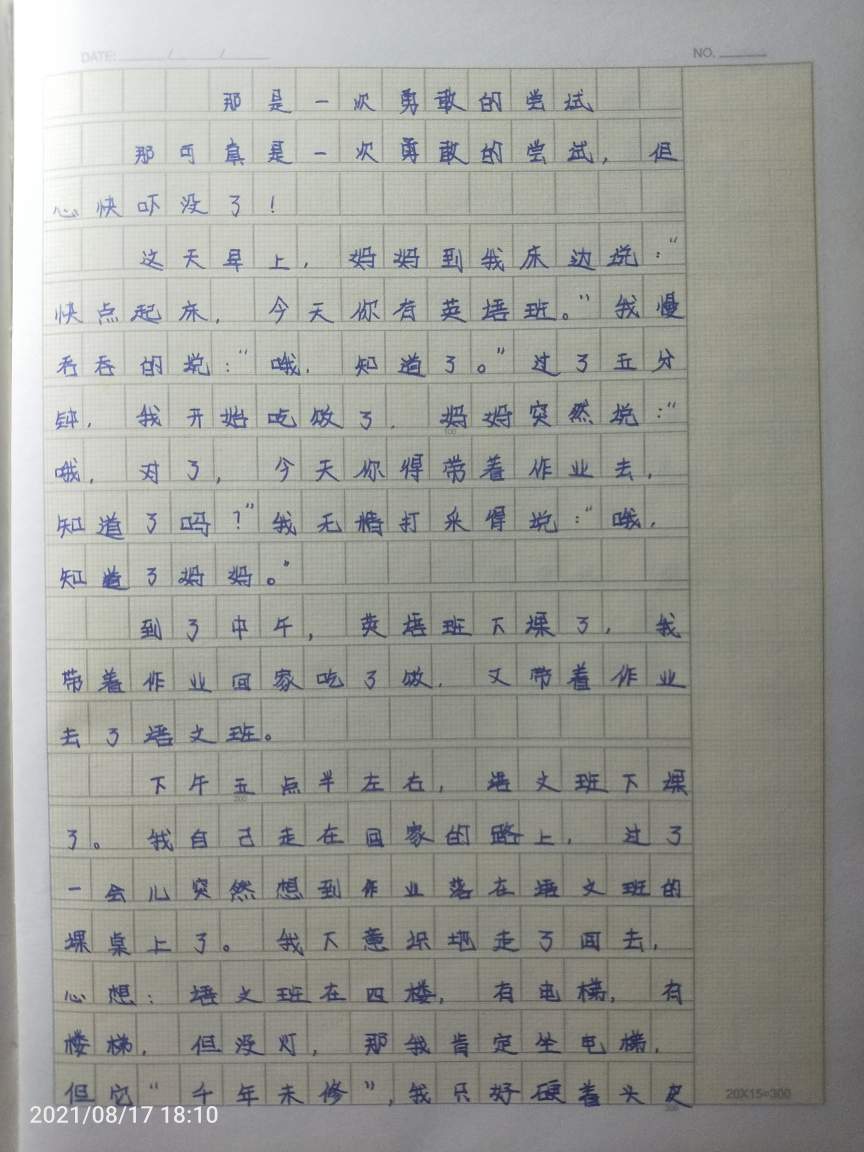 DATE: / /
NO.
那是一次勇敢的尝试
那可真是一次勇敢的尝试，但
心快吓没了！
这天早上，妈妈到我床边说：“
快点起床，今天你有英语班。”我慢
吞吞的说：“哦，知道了。”过了五分
钟，我开始吃饭了，妈妈突然说：“
哦，对了，今天你得带着作业去，
知道了吗？”我无精打采得说：“哦，
知道了妈妈。”
到了中午，英语班下课了，我
带着作业回家吃了饭，又带着作业
去了语文班。
下午五点半左右，语文班下课
了。我自己走在回家的路上，过了
一会儿突然想到作业落在语文班的
课桌上了。我下意识地走了回去，
心想：语文班在四楼，有电梯，有
楼梯，但没灯，那我肯定坐电梯，
但它“千年未修”，我只好硬着头皮
20X15=300
2021/08/17 18:10